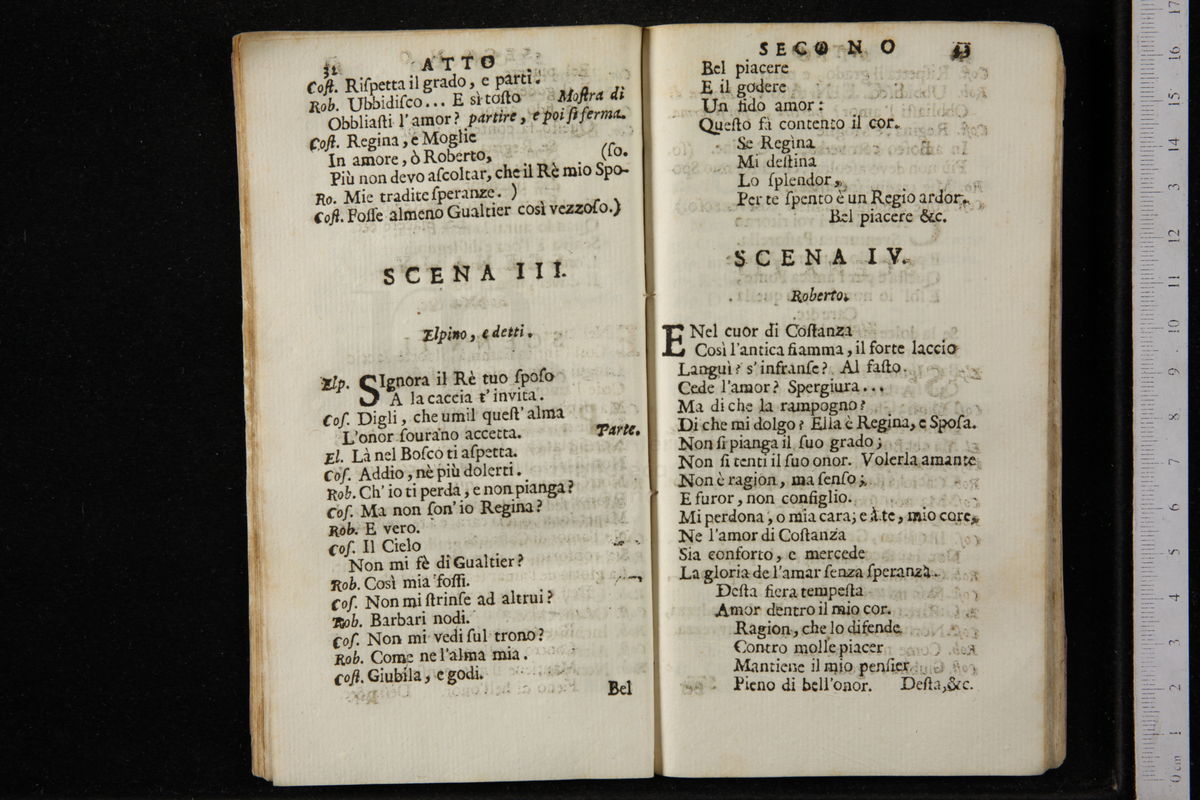 32 ATTO
Cost. Riſpetta il grado, e parti.
Rob. Ubbidiſco... E sì toſto Moſtra di
Obbliaſti l'amor? partire, e poi ſi ferma.
Coſt. Regina, e Moglie
In amore, ò Roberto, (ſo.
Più non devo aſcoltar, che il Rè mio Spo-
Ro. Mie tradite ſperanze. )
Coſt. Foſſe almeno Gualtier così vezzoſo.)
SCENA III.
Elpino, e detti.
Elp. SIgnora il Rè tuo ſpoſo
A la caccia t'invita.
Coſ. Digli, che umil queſt' alma
L'onor ſourano accetta. Parte.
El. Là nel Boſco ti aſpetta.
Coſ. Addio, nè più dolerti.
Rob. Ch' io ti perda, e non pianga?
Coſ. Ma non ſon' io Regina?
Rob. E vero.
Coſ. Il Cielo
Non mi fè di Gualtier?
Rob. Così mia foſſi.
Coſ. Non mi ſtrinſe ad altrui?
Rob. Barbari nodi.
Coſ. Non mi vedi ſul trono?
Rob. Come ne l'alma mia.
Coſt. Giubila, e godi.
Bel
SECONO 33
Bel piacere
E il godere
Un fido amor:
Queſto fà contento il cor.
Se Regina
Mi deſtina
Lo ſplendor,
Per te ſpento è un Regio ardor.
Bel piacere &c.
SCENA IV.
Roberto.
E Nel cuor di Coſtanza
Così l'antica fiamma, il forte laccio
Languì? s'infranſe? Al faſto
Cede l'amor? Spergiura...
Ma di che la rampogno?
Di che mi dolgo? Ella è Regina, e Spoſa.
Non ſi pianga il ſuo grado;
Non ſi tenti il ſuo onor. Volerla amante
Non è ragion, ma ſenſo;
E furor, non conſiglio.
Mi perdona, o mia cara; e à te, mio core,
Ne l'amor di Coſtanza
Sia conforto, e mercede
La gloria de l'amar ſenza ſperanza.
Deſta fiera tempeſta
Amor dentro il mio cor.
Ragion, che lo difende
Contro molle piacer
Mantiene il mio penſier
Pieno di bell'onor. Deſta, &c.
0 cm 1 2 3 4 5 6 7 8 9 10 11 12 13 14 15 16 17